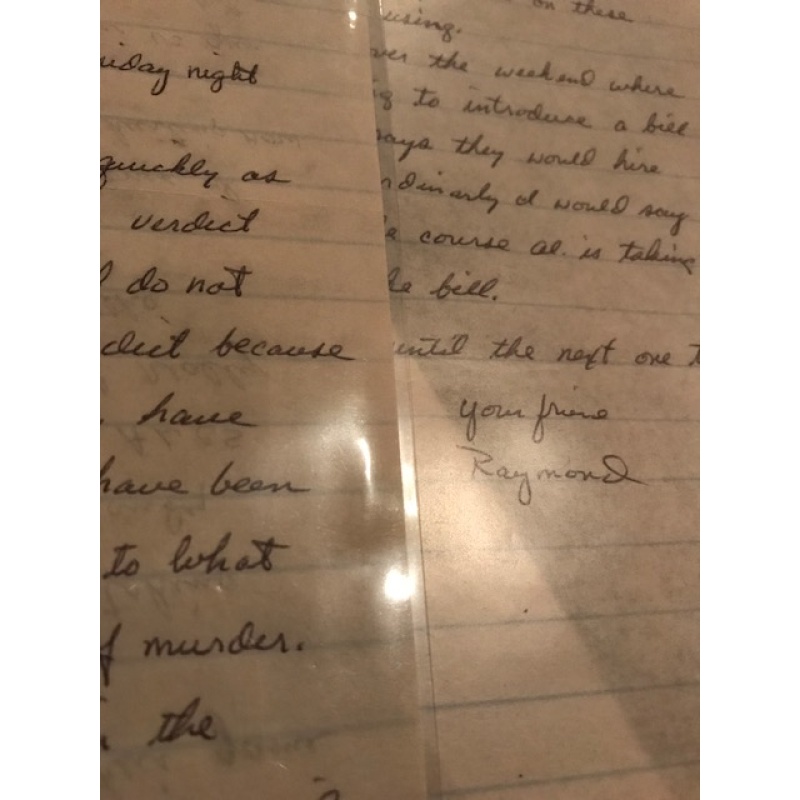 iday night
quickly as
verdict
do not
dict because
have
have been
to what
f murder.
the
on these
using.
ver the weekend where
g to introduce a bill
says they would hire
rdinarly I would say
e course al. is taking
he bill.
until the next one t
your friend
Raymond